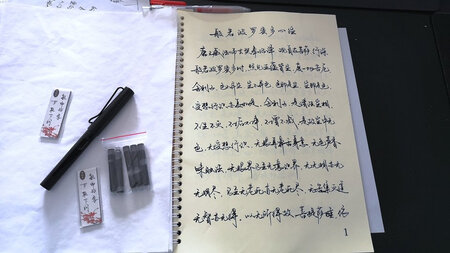 般若波罗蜜多心经
唐三藏法师玄奘奉诏译 观自在菩萨 行深
般若波罗蜜多时,照见五蕴皆空,度一切苦厄,
舍利子,色不异空,空不异色,色即是空,空即是色,
受想行识,亦复如是,舍利子,是诸法空相,
不生不灭,不垢不净,不增不减,是故空中无
色,无受想行识,无眼耳鼻舌身意,无色声香
味触法,无眼界乃至无意识界,无无明亦无
无明尽,乃至无老死亦无老死尽,无苦集灭道
无智亦无得,以无所得故,菩提萨埵,依
1